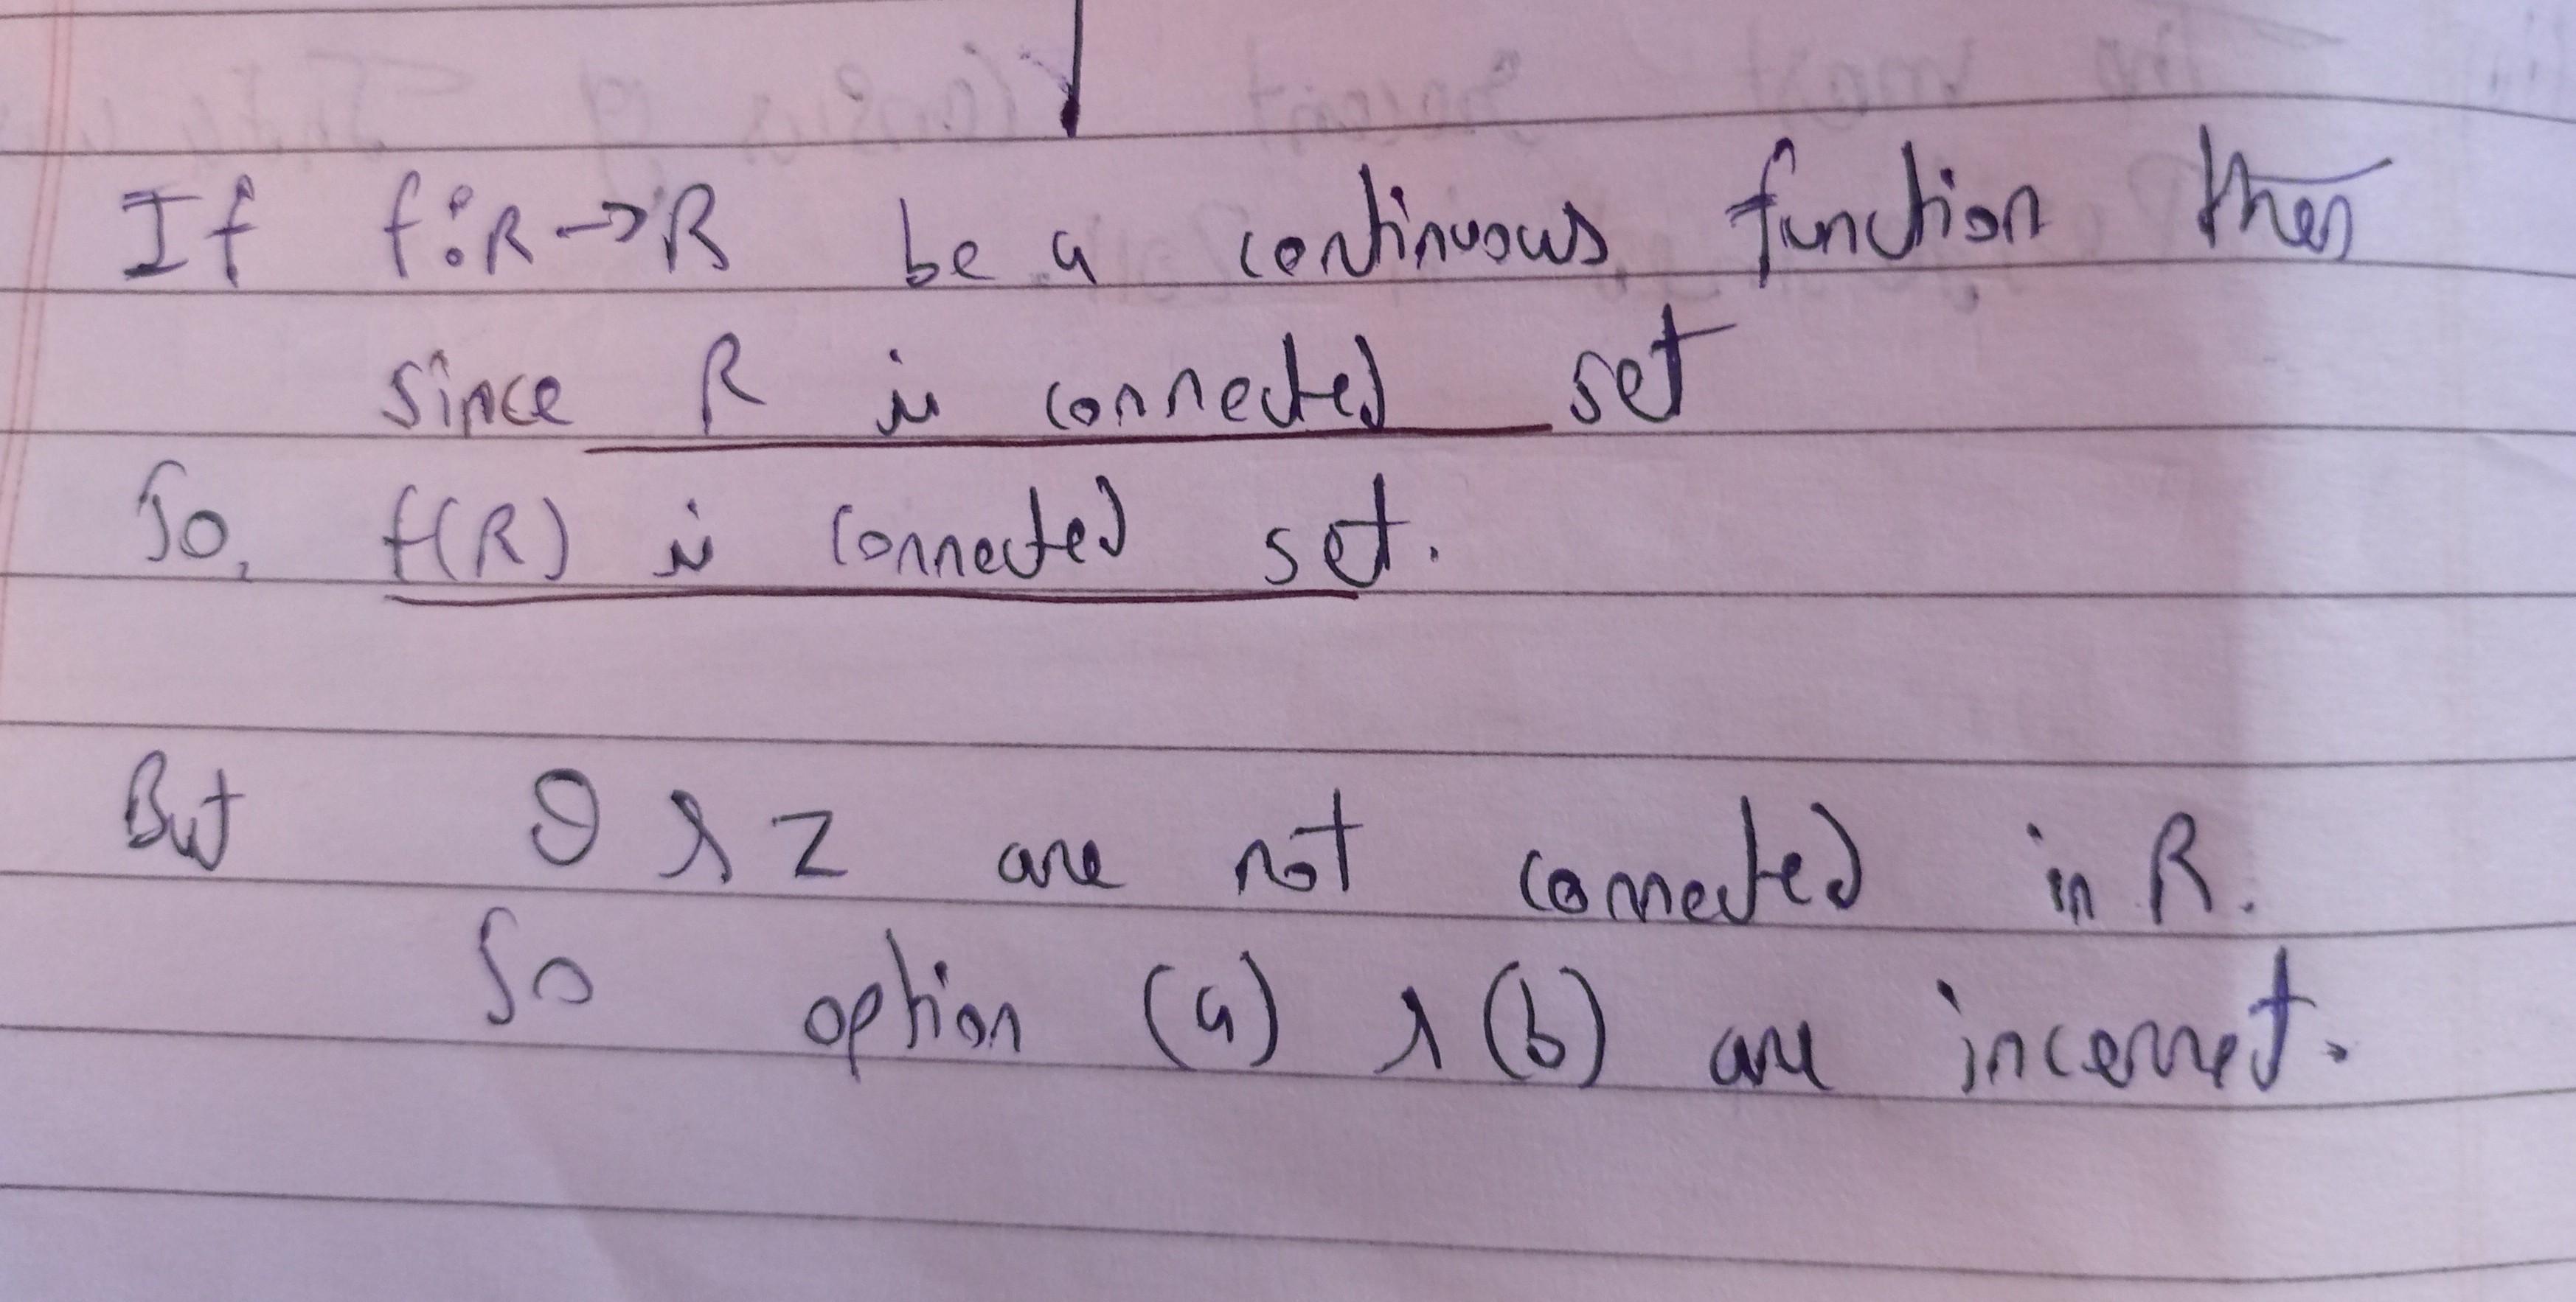 If f:R→R be a continuous function then
since R is connected set
So, f(R) is connected set.
But Q & Z are not connected in R.
So option (a) & (b) are incorrect.